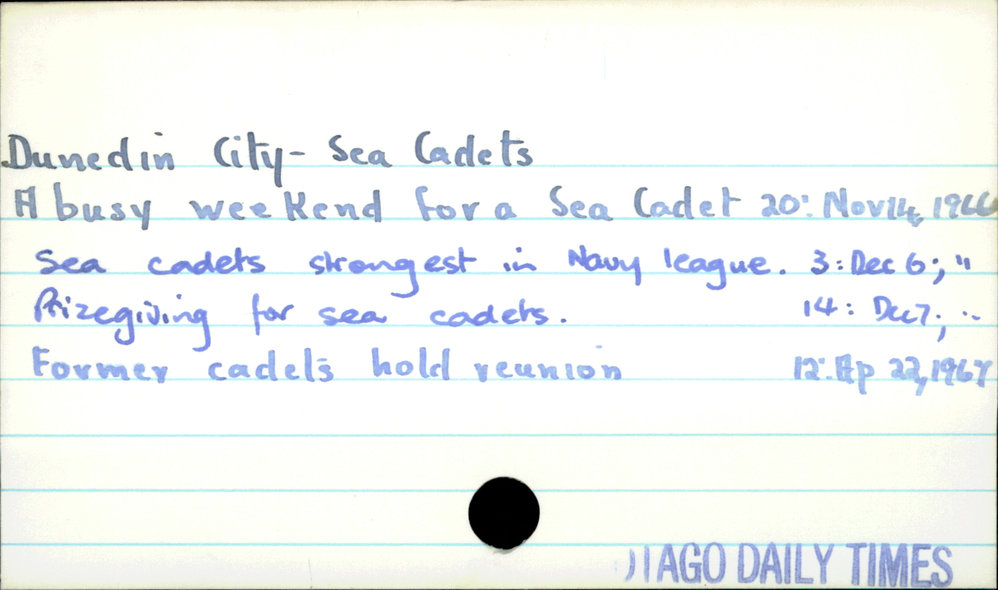 Dunedin City - Sea Cadets
A busy weekend for a Sea Cadet 20: Nov 14, 1966
Sea cadets strongest in Navy league. 3: Dec 6; "
Prizegiving for sea cadets. 14: Dec 7; "
Former cadets hold reunion 12: Ap 22, 1967
OTAGO DAILY TIMES